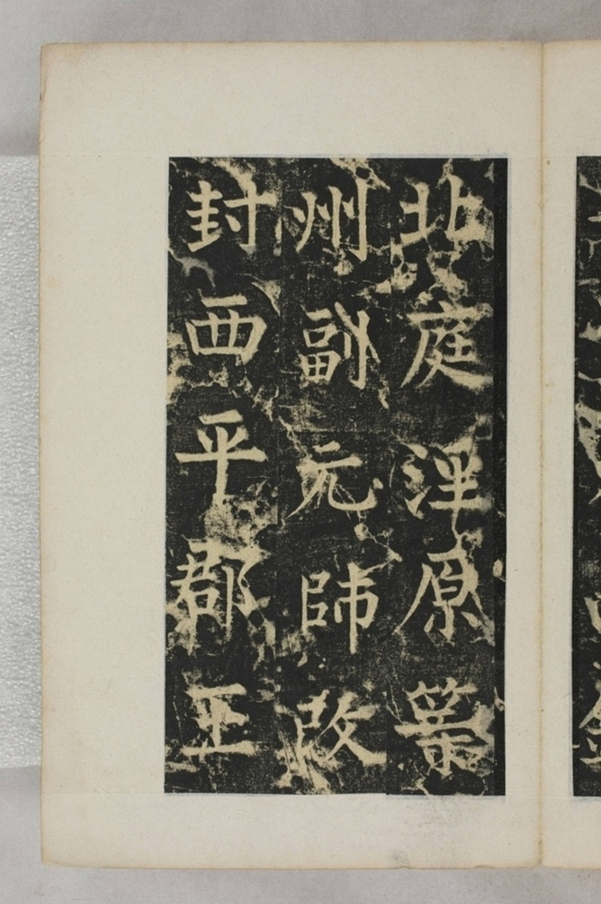 北庭涇原
州副元帥改
封西平郡王